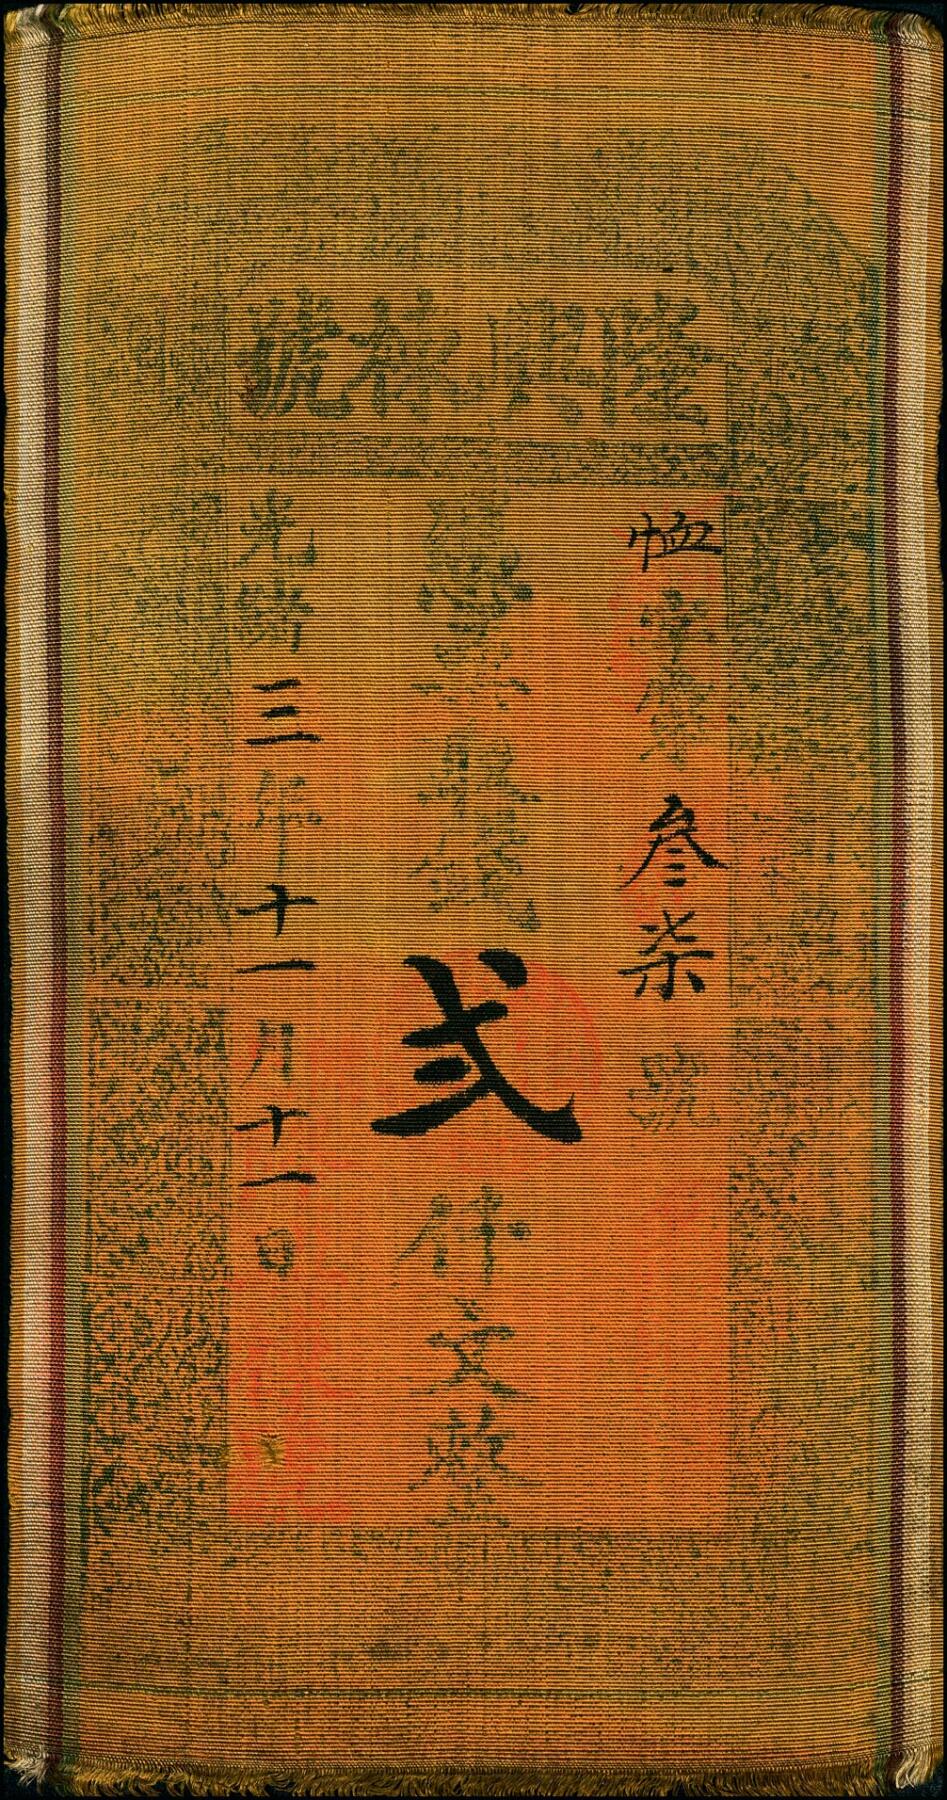 興 號
恤字第叁柒號
憑票取錢弍仟文整
光緒三年十一月十一日